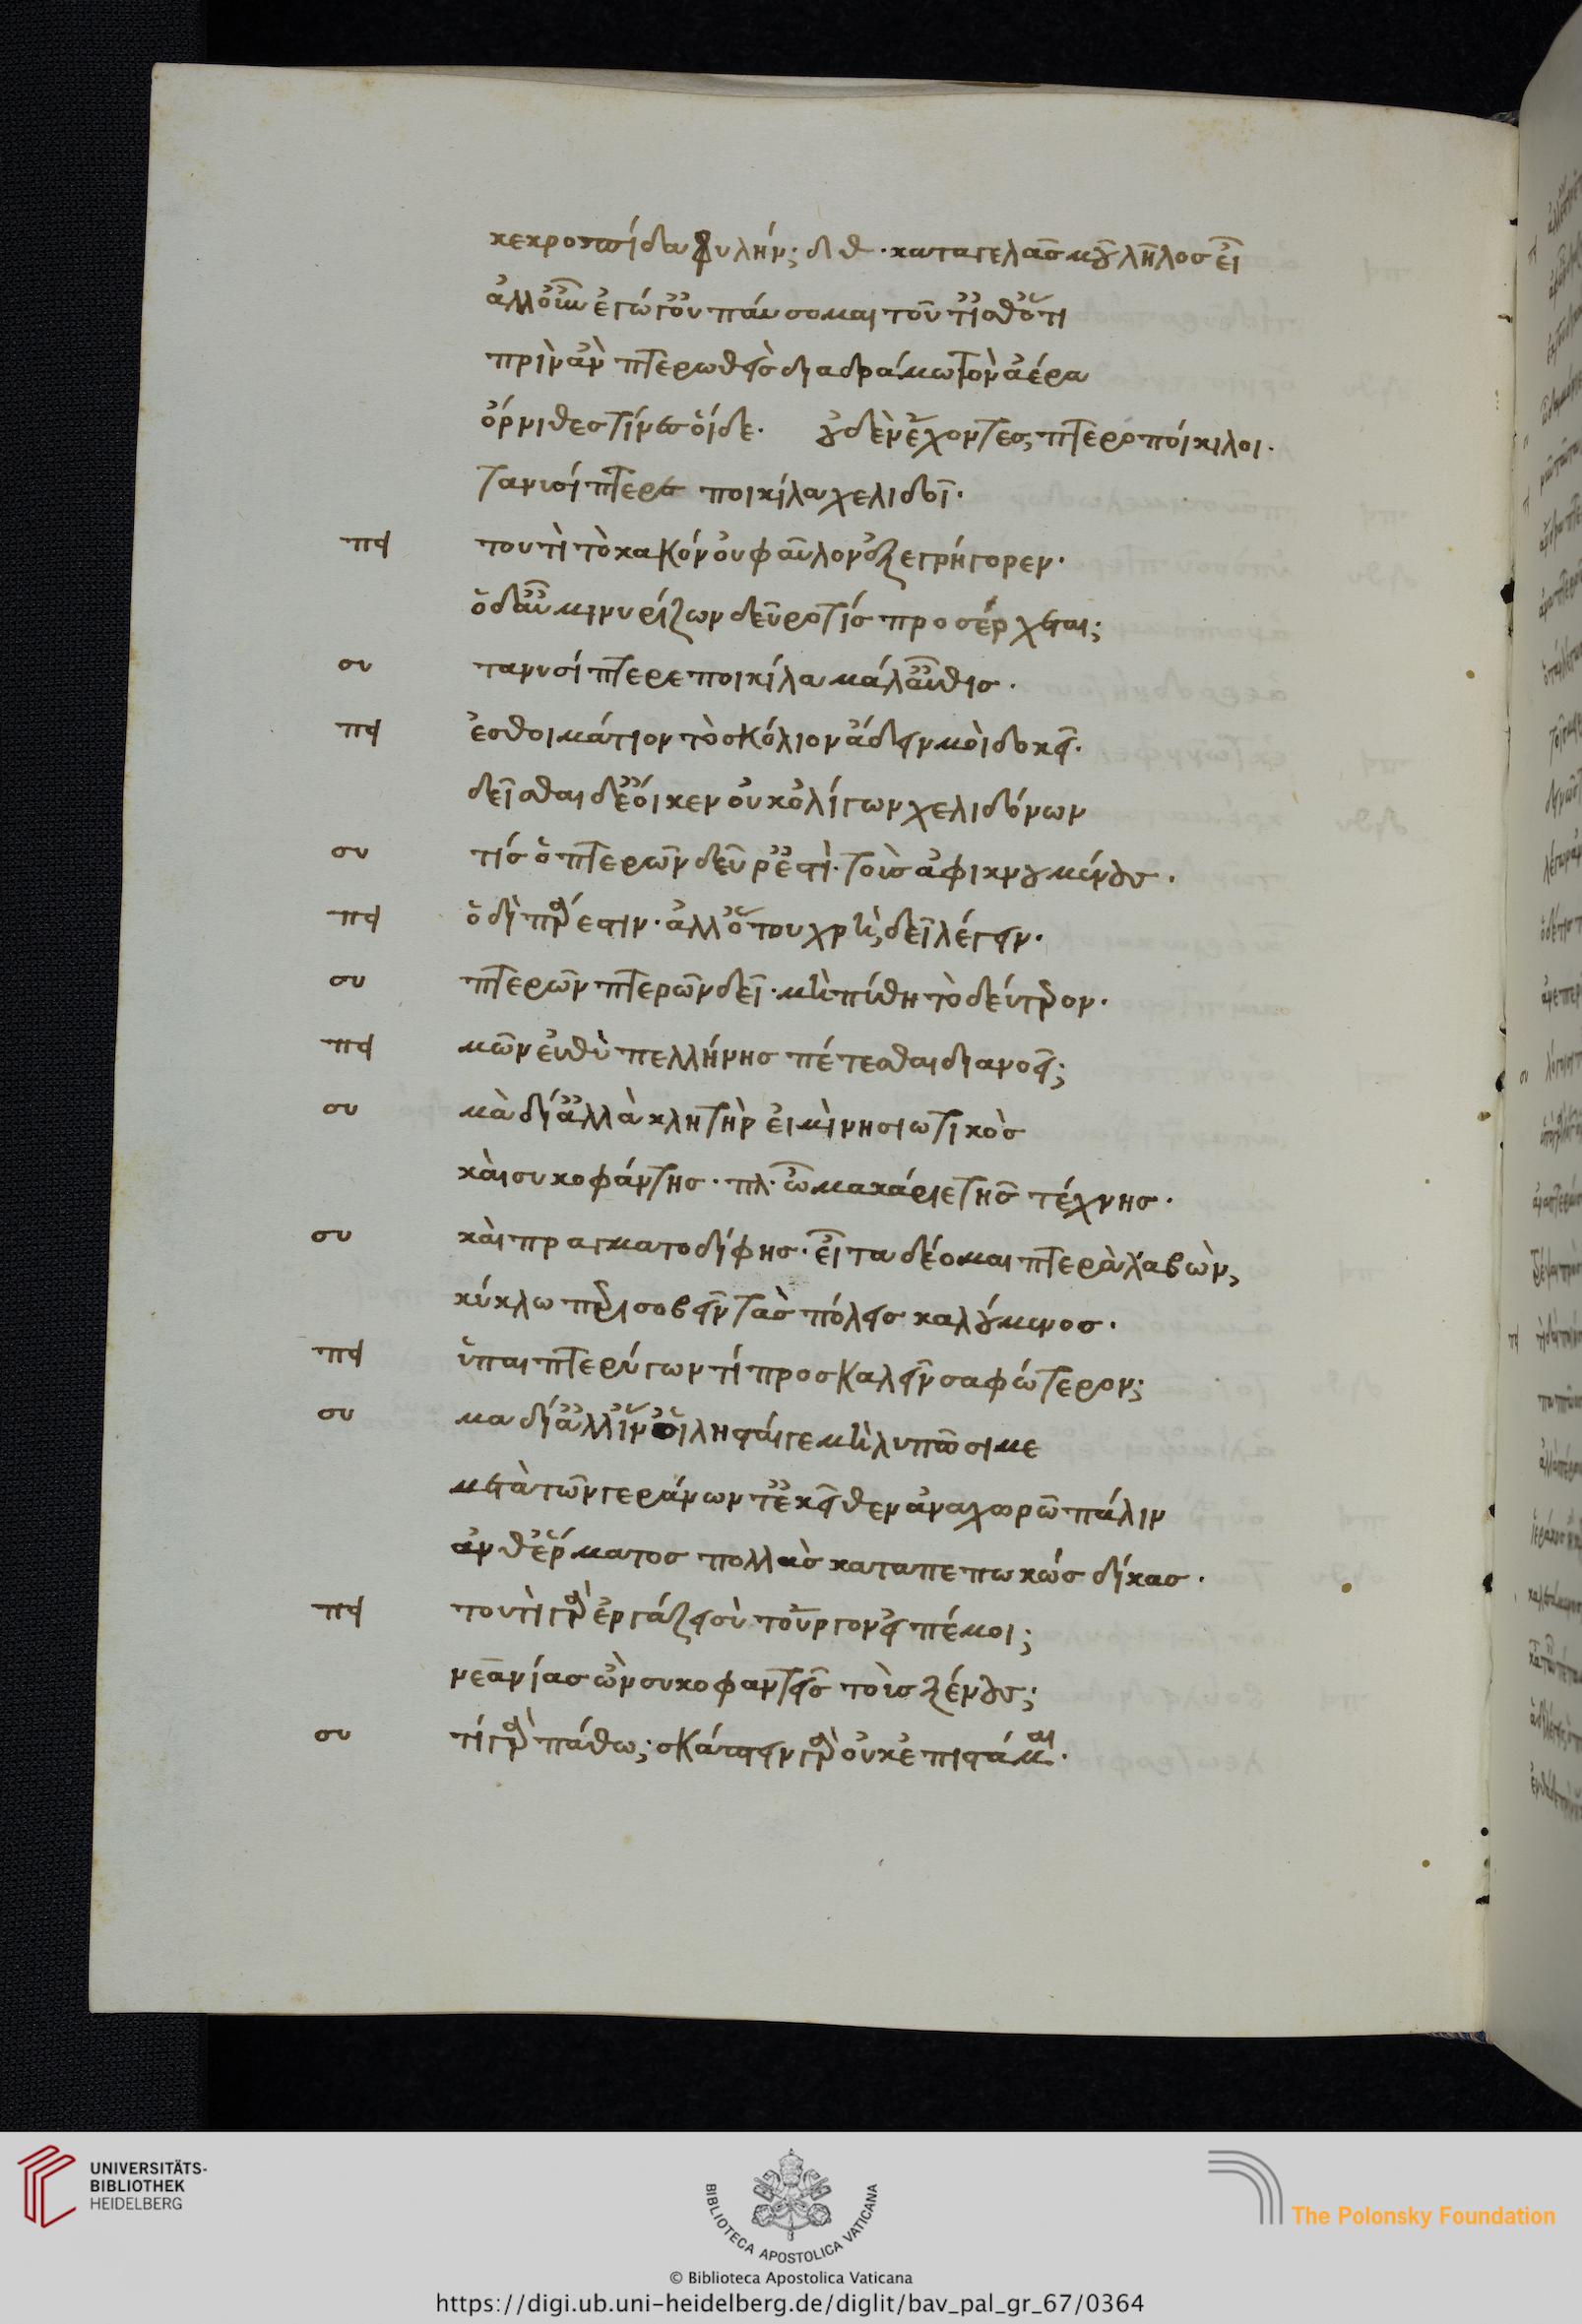 κεκροπίδα φυλήν; διθ. καταγελᾶσ μου δῆλοσ εἶ
ἀλλοὖν ἔγωγ οὐ παύσομαι τοῦτ ἴσθ ὅτι
πρὶν ἂν πτερωθεὶσ διαδράμω τὸν ἀέρα
ὄρνιθεσ τίνεσ οἵδε. οὐδὲν ἔχοντεσ πτεροποίκιλοι.
τανυσίπτερε ποικίλα χελιδοῖ.
πει τουτὶ τὸ κακὸν οὐ φαῦλον ἐξεγρήγορεν.
ὅδ αὖ μινυρίζων δεῦρό τίσ προσέρχεται;
συ τανυσίπτερε ποικίλα μάλ αὖθισ.
πει ἐσ θοιμάτιον τὸ σκόλιον ἄδειν μοι δοκεῖ.
δεῖσθαι δ ἔοικεν οὐκ ὀλίγων χελιδόνων
συ τίσ ὁ πτερῶν δεῦρ ἐστὶ τοὺσ ἀφικνουμένουσ.
πει ὁδὶ πάρεστιν. ἀλλ ὅτου χρὴ δεῖ λέγειν.
συ πτερῶν πτερῶν δεῖ. μὴ πύθη τὸ δεύτερον.
πει μῶν εὐθὺ πελλήνησ πέτεσθαι διανοεῖ;
συ μὰ δί ἀλλὰ κλητήρ εἰμι νησιωτικὸσ
καὶ συκοφάντησ. πλ. ὦ μακάριε τῆσ τέχνησ.
συ καὶ πραγματοδίφησ. εἶτα δέομαι πτερὰ λαβὼν,
κύκλω περισοβεῖν τὰσ πόλεισ καλούμενοσ.
πει ὑπαὶ πτερύγων τί προσκαλεῖν σαφώτερον;
συ μα δί ἀλλ ἵν οἱ λησταί γε μὴ λυπῶσί με
μετὰ τῶν γεράνων τ ἐκεῖθεν ἀναχωρῶ πάλιν
ἀνθ ἕρματοσ πολλὰσ καταπεπωκώσ δίκασ.
πει τουτὶ γὰρ ἐργάζει σὺ τοὖργον εἰπέ μοι;
νεανίασ ὢν συκοφαντεῖσ τοὺσ ξένουσ;
συ τί γὰρ πάθω; σκάπτειν γὰρ οὐκ ἐπίσταμαι.
UNIVERSITÄTS-
BIBLIOTHEK
HEIDELBERG
BIBLIOTECA APOSTOLICA VATICANA
The Polonsky Foundation
© Biblioteca Apostolica Vaticana
https://digi.ub.uni-heidelberg.de/diglit/bav_pal_gr_67/0364